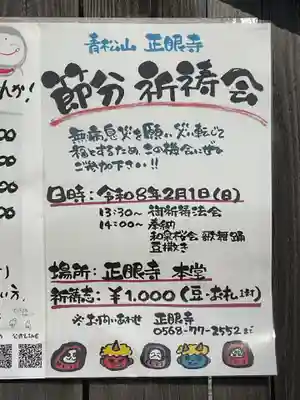 青松山 正眼寺
節分祈祷会
無病息災を願い、災い転じて
福とするため、この機会にぜひ
ご参加下さい!!
日時:令和8年2月1日(日)
13:30~ 御祈祷法会
14:00~ 奉納
和泉桜会 歌舞踊
豆撒き
場所:正眼寺 本堂
祈祷志:¥1,000(豆・お札1封)
※お問い合わせ 正眼寺
0568-77-2552まで
んか!
00
00
00
00
い方、
公式LINE